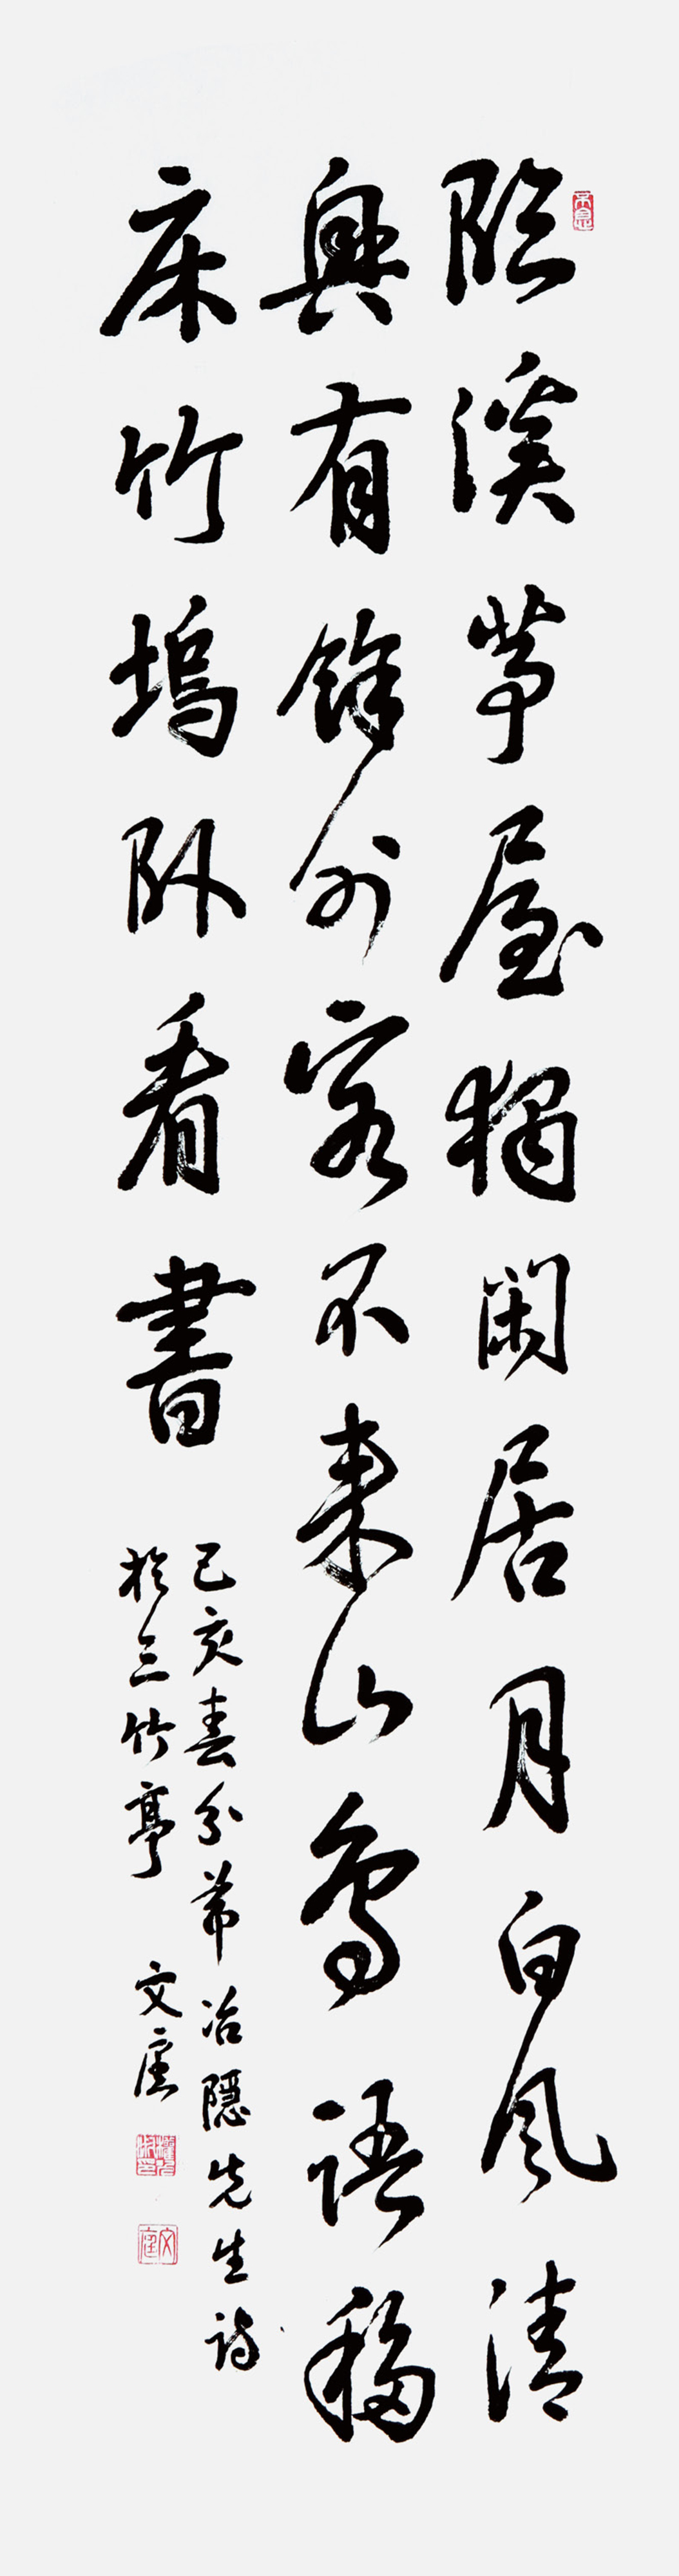 臨溪茅屋獨閑居月白風清
興有餘外客不來山鳥語移
床竹塢臥看書
己亥春分節冶隱先生詩
於三竹亭 文